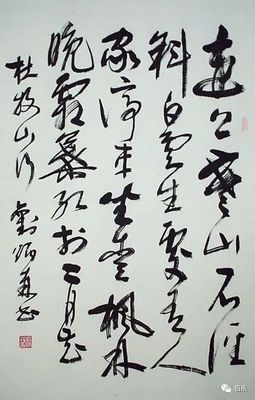 遠上寒山石徑
斜白雲生處有人
家停車坐愛楓林
晚霜葉紅於二月花
杜牧山行
劉炳森書
伯乐